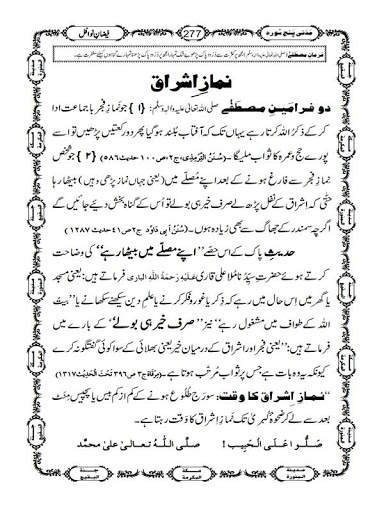 مدنی پنج سورہ 277 فیضانِ نوافل
فرمانِ مصطفٰے
نمازِ اِشراق
دو فرامینِ مصطفٰے صلی اللہ تعالیٰ علیہ والہٖ وسلم: {۱} جو نمازِ فجر باجماعت ادا
کر کے ذکرُ اللہ کرتا رہے یہاں تک کہ آفتاب بلند ہو گیا پھر دو رکعتیں پڑھیں تو اسے
پورے حج و عمرہ کا ثواب ملیگا۔ (سُنَنُ التِّرمِذی، ج۲ ص۱۰۰ حدیث ۵۸۶) {۲} جو شخص
نمازِ فجر سے فارغ ہونے کے بعد اپنے مُصلّے میں (یعنی جہاں نماز پڑھی وہیں) بیٹھا رہا
حتّٰی کہ اشراق کے نفل پڑھ لے صرف خیر ہی بولے تو اُس کے گناہ بخش دیئے جائیں گے
اگرچہ سمندر کے جھاگ سے بھی زیادہ ہوں۔ (سُنَن اَبِی داوٗد ج۲ ص۴۱ حدیث ۱۲۸۷)
حدیثِ پاک کے اس حصّے "اپنے مصلّے میں بیٹھا رہے" کی وضاحت
کرتے ہوئے حضرتِ سیِّدُنا مُلّا علی قاری عَلَیْہِ رَحمَۃُ اللہِ الباری فرماتے ہیں: یعنی مسجد
یا گھر میں اِس حال میں رہے کہ ذکر یا غور و فکر کرنے یا علمِ دین سیکھنے سکھانے یا "بیتُ
اللہ کے طواف میں مشغول رہے" نیز "صرف خیر ہی بولے" کے بارے میں
فرماتے ہیں: "یعنی فجر اور اشراق کے درمیان خیر یعنی بھلائی کے سوا کوئی گفتگو نہ کرے
کیونکہ یہ وہ بات ہے جس پر ثواب مُرتّب ہوتا ہے۔ (مِرقاۃ ج۳ ص۳۹۶ تَحتَ الحدیث ۱۳۱۷)
"نمازِ اِشراق کا وقت: سورج طلوع ہونے کے کم از کم بیس یا پچیس منٹ
بعد سے لے کر ضحوۂ کُبریٰ تک نمازِ اشراق کا وَقت رہتا ہے۔
صَلُّوا عَلَی الْحَبِیب! صلَّی اللہُ تعالٰی علٰی محمَّد